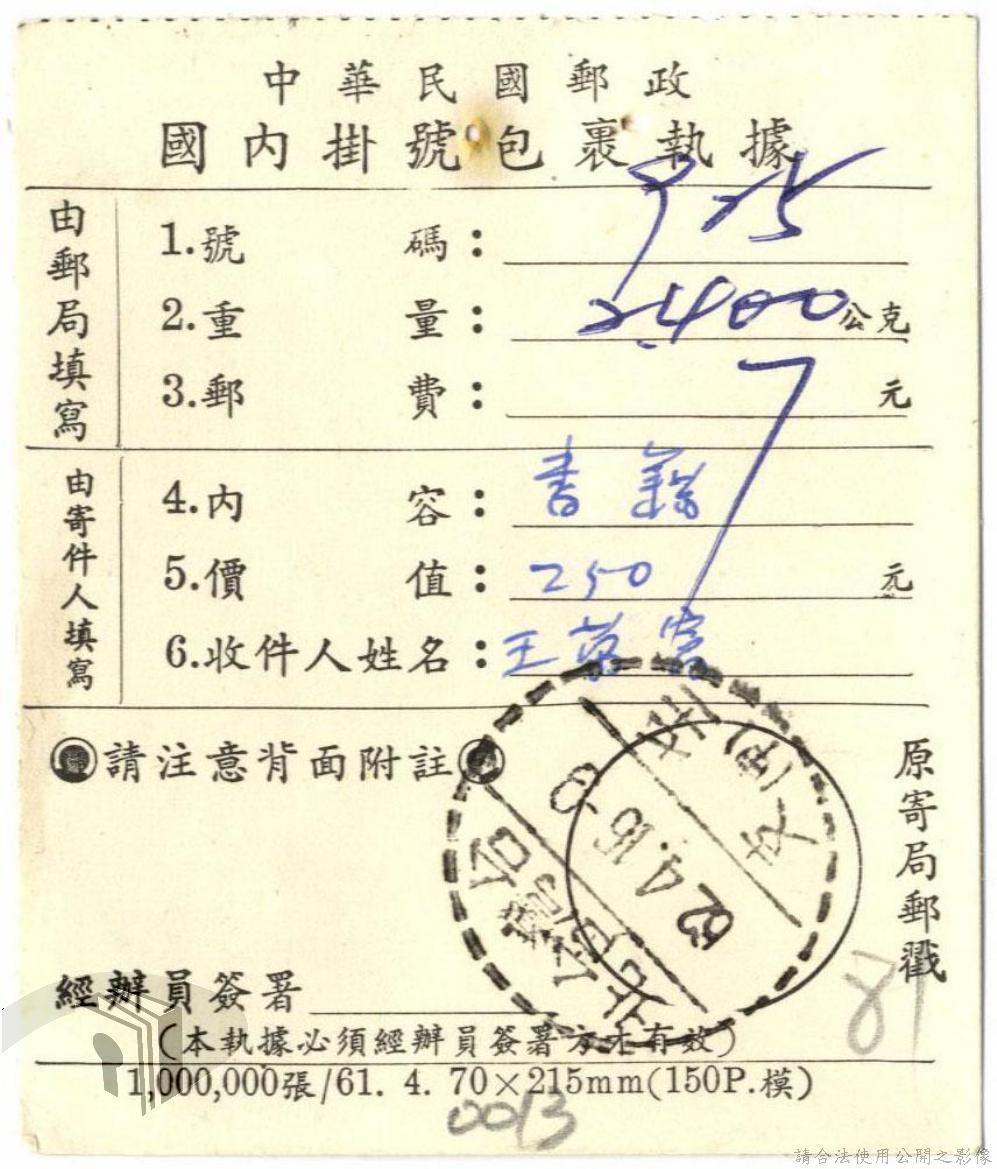 中華民國郵政
國內掛號包裹執據
由郵局填寫
1.號碼：925
2.重量：2400公克
3.郵費：7元
由寄件人填寫
4.內容：書籍
5.價值：250元
6.收件人姓名：王
請注意背面附註
原寄局郵戳
62.4.16
經辦員簽署
(本執據必須經辦員簽署方才有效)
1,000,000張/61. 4. 70×215mm(150P.模)
87
0013
請合法使用公開之影像